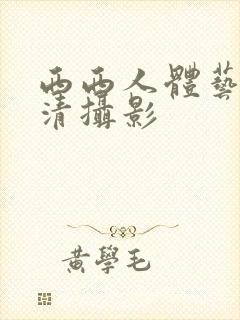 西西人體藝
清攝影
黃學毛